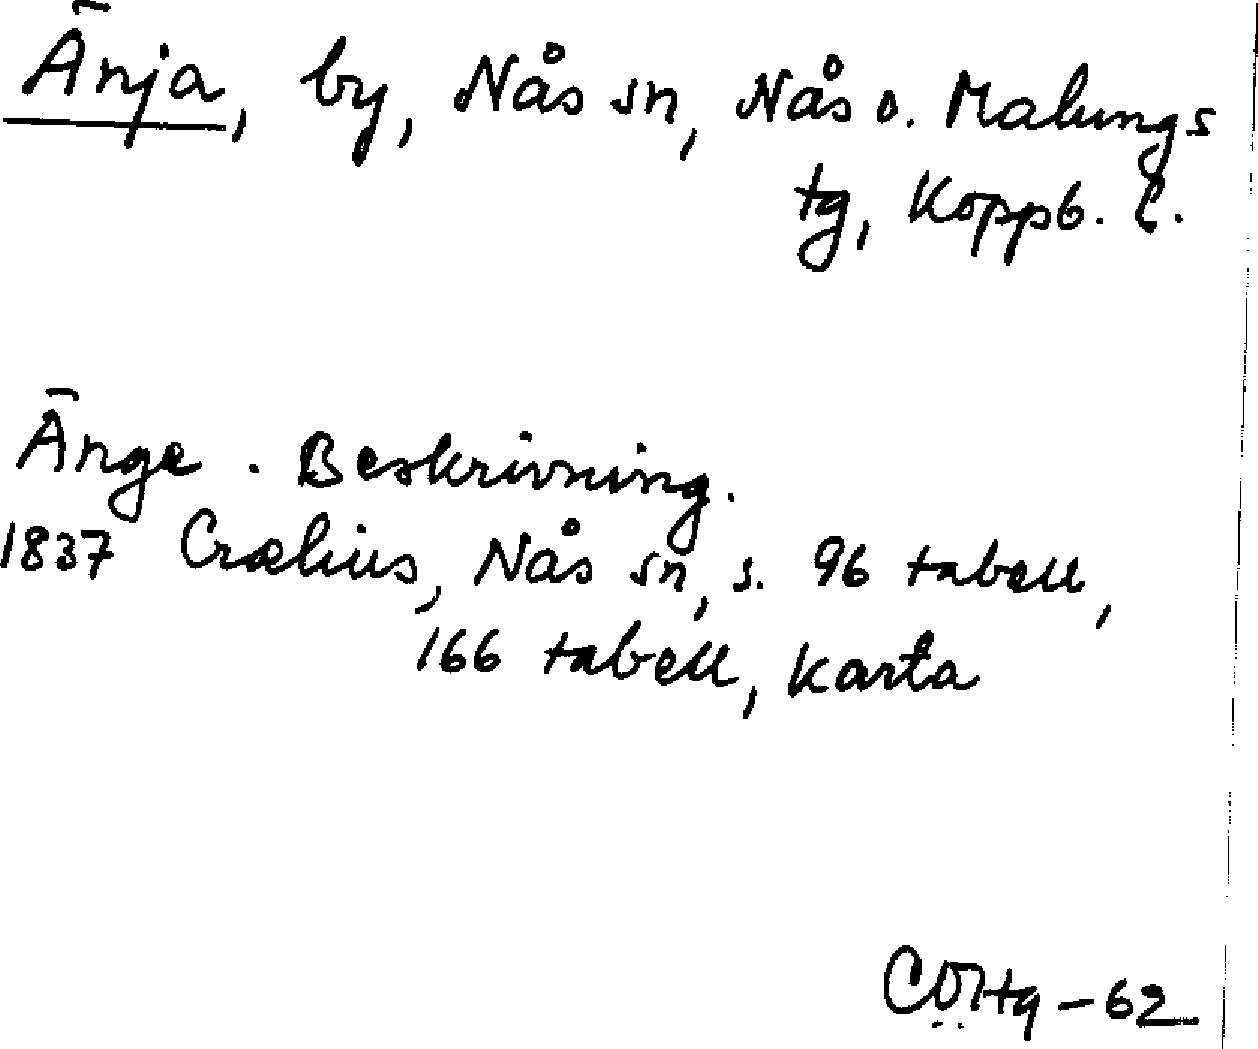 Änja, by, Nås sn, Nås o. Malungs
tg, Koppb. l.
Änge. Beskrivning.
1837 Crælius, Nås sn, s. 96 tabell,
166 tabell, karta